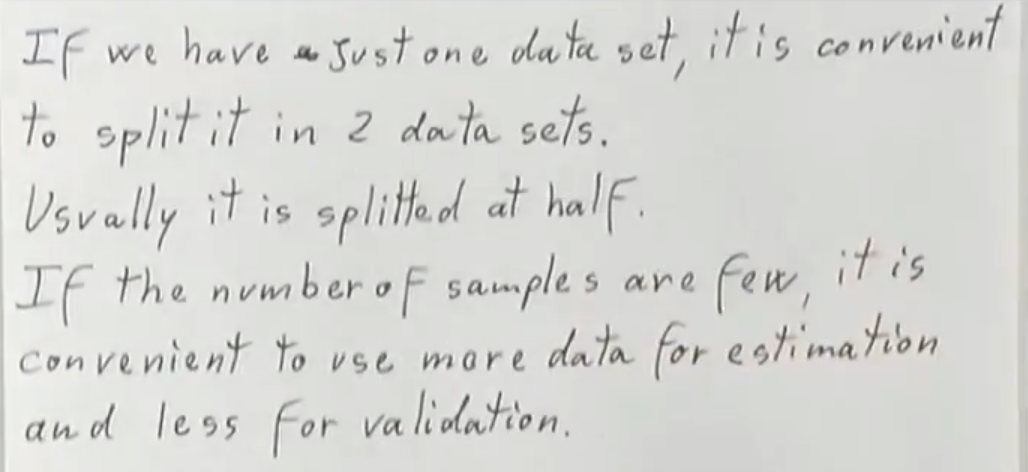 If we have a just one data set, it is convenient
to split it in 2 data sets.
Usually it is splitted at half.
If the number of samples are few, it is
convenient to use more data for estimation
and less for validation.